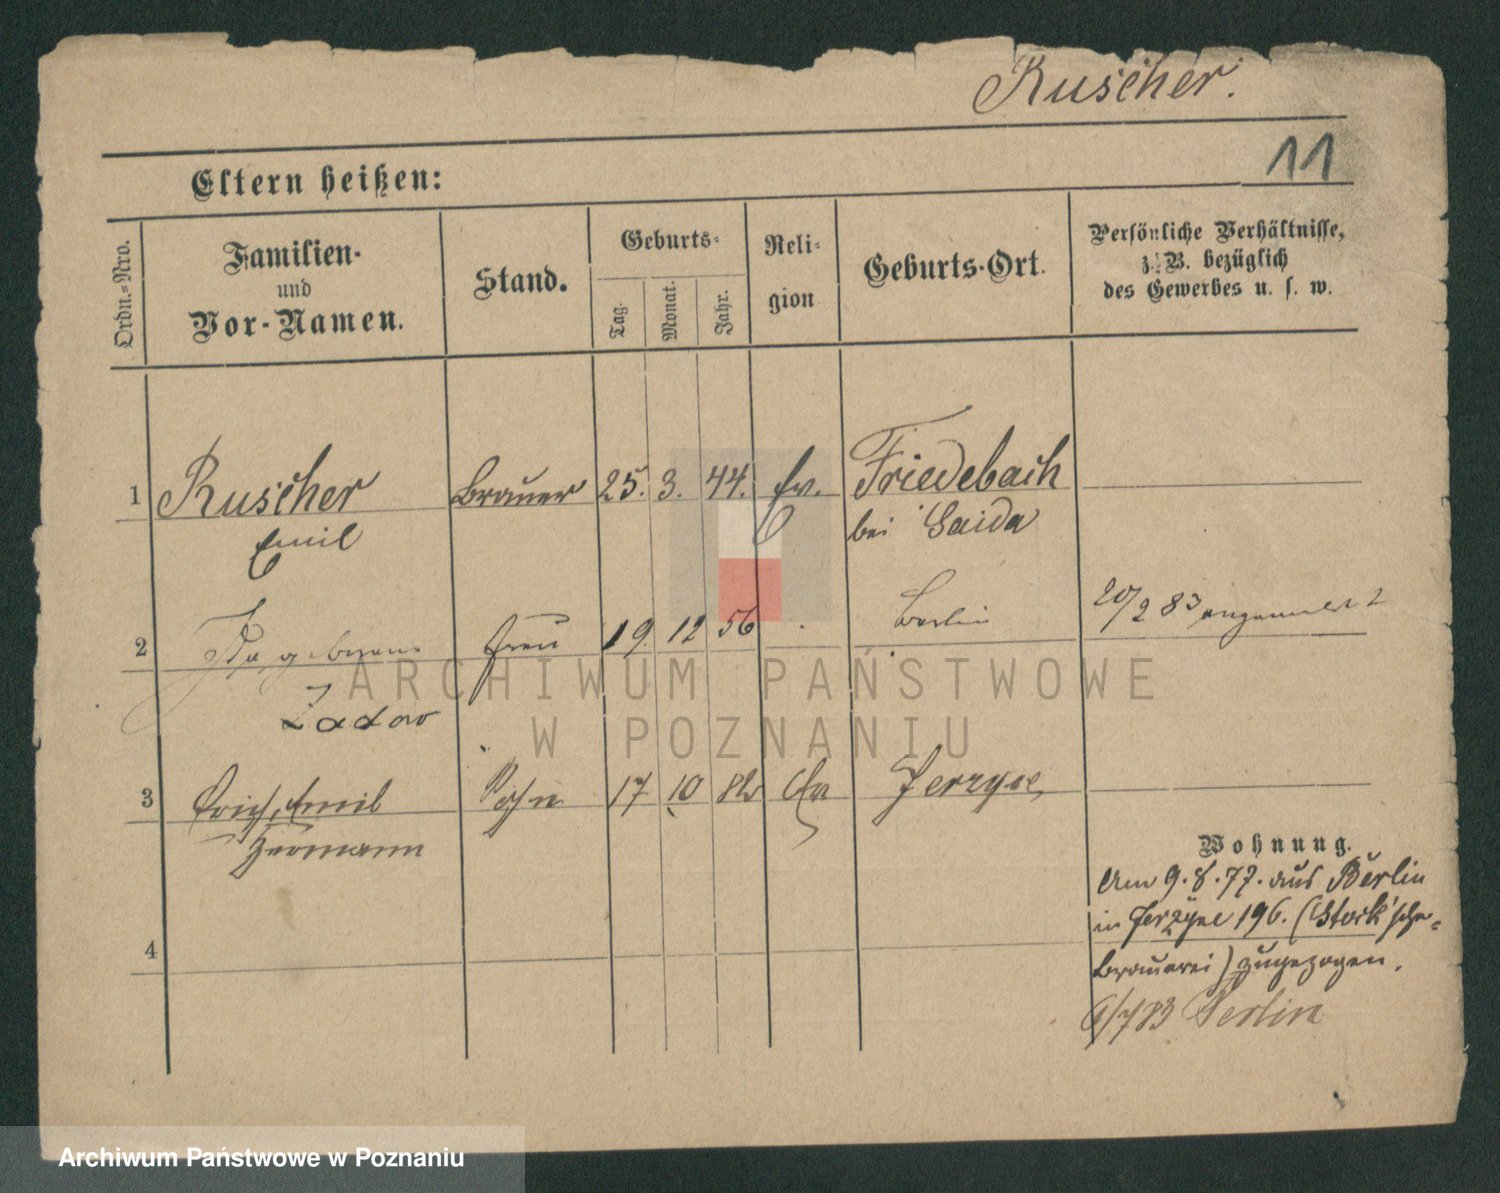 Ruscher.
11
Eltern heißen:
Ordn.-Nro.
Familien-
und
Vor-Namen.
Stand.
Geburts-
Tag.
Monat.
Jahr.
Reli-
gion
Geburts-Ort.
Persönliche Verhältnisse,
z. B. bezüglich
des Gewerbes u. s. w.
1 Ruscher Brauer 25. 3. 44. Ev. Friedebach
Emil bei Saida
2 Ida geborene Frau 19. 12 56 Berlin 20/2 83 angemeldet
Zadow
3 Erich, Emil Sohn 17 10 82 Ev Jerzyce
Hermann
Wohnung.
Am 9. 8. 77. aus Berlin
in Jerzyce 196. (Stock'sche-
Brauerei) zugezogen.
4
6/7 83 Berlin
ARCHIWUM PAŃSTWOWE
W POZNANIU
Archiwum Państwowe w Poznaniu